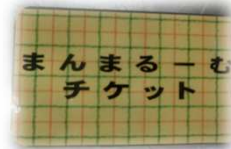 まんまるーむ
チケット